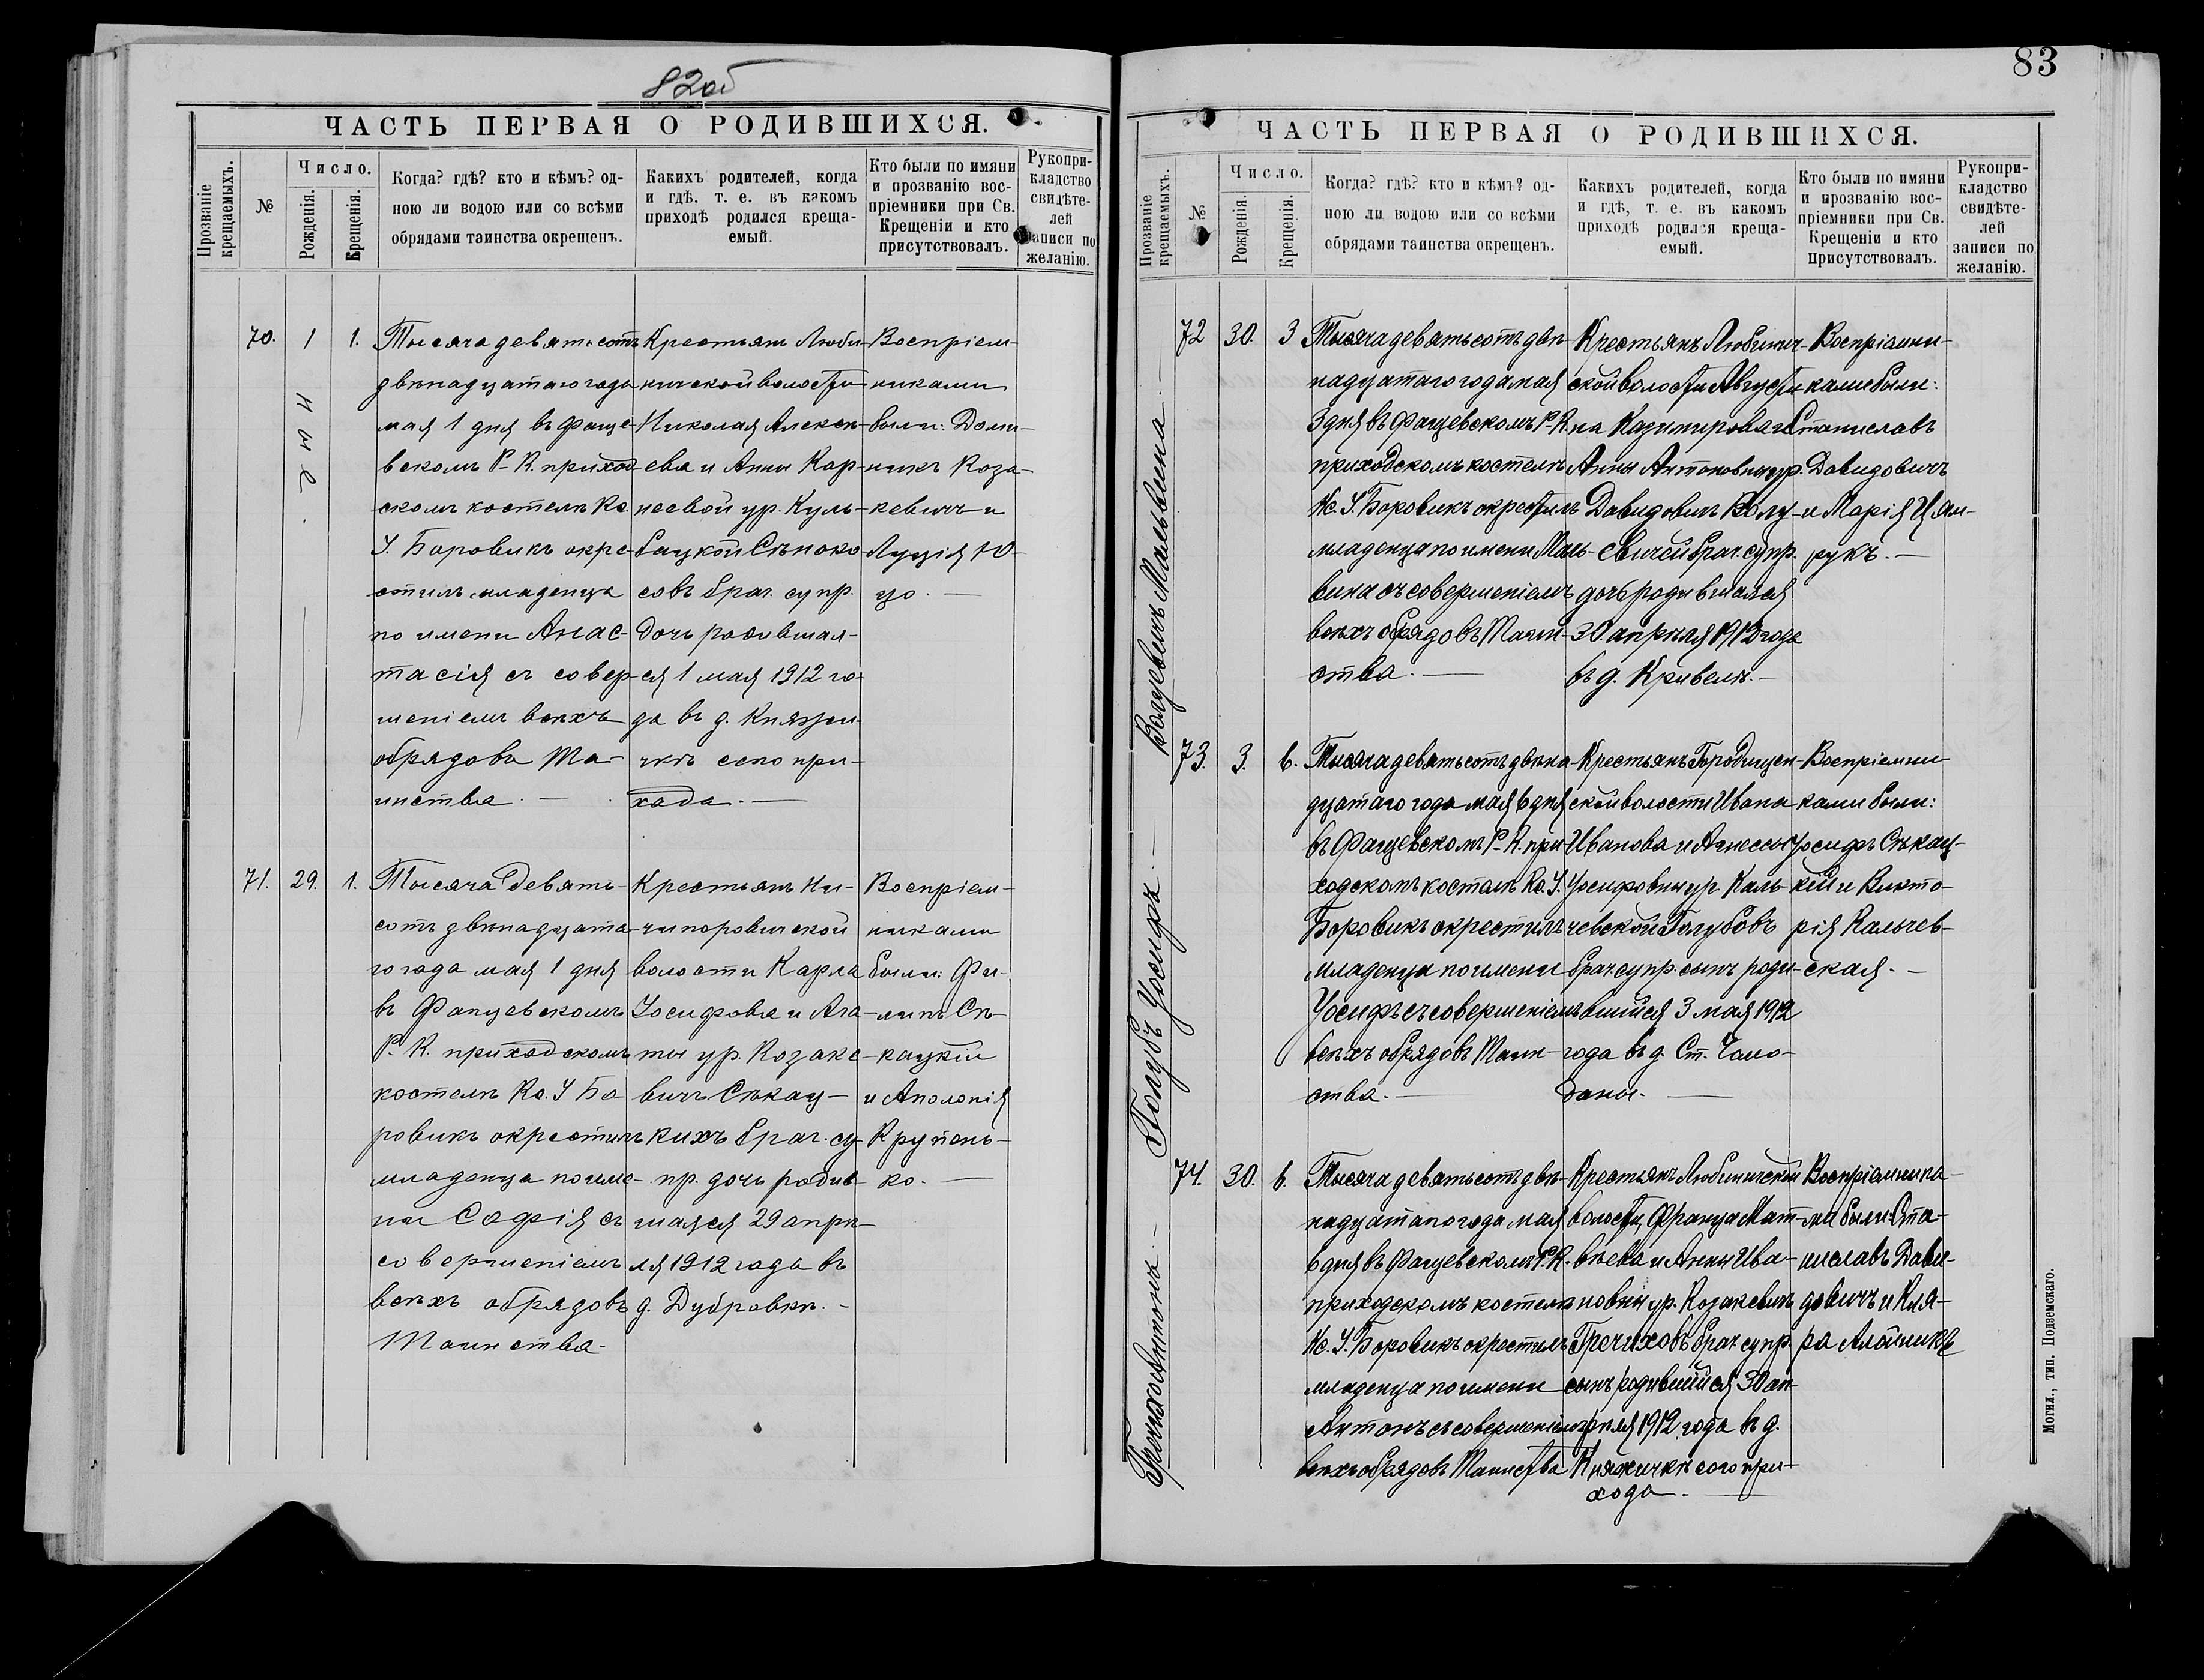 82об
ЧАСТЬ ПЕРВАЯ О РОДИВШИХСЯ.
Прозваніе крещаемыхъ.
№
Число.
Рожденія.
Крещенія.
Когда? гдѣ? кто и кѣмъ? од-
ною ли водою или со всѣми
обрядами таинства окрещенъ.
Какихъ родителей, когда
и гдѣ, т. е. въ какомъ
приходѣ родился креща-
емый.
Кто были по имяни
и прозванію вос-
пріемники при Св.
Крещеніи и кто
присутствовалъ.
Рукопри-
кладство
свидѣте-
лей
записи по
желанію.
70.
1
1.
Тысяча девятьсотъ
двѣнадцатаго года
мая 1 дня въ Фаще-
вскомъ Р-К. приход-
скомъ костелѣ Кс.
І. Боровикъ окре-
стилъ младенца
по имени Анас-
тасія съ совер-
шеніемъ всѣхъ
обрядовъ Та-
инства.
Крестьянъ Люби-
ничской волости
Николая Алексѣ-
ева и Анны Кор-
неевой ур. Куль-
бацкой Сѣноко-
совъ брач. супр.
дочь родившая-
ся 1 мая 1912 го-
да въ д. Княжи-
чкѣ сего при-
хода.
Воспріем-
никами
были: Доми-
никъ Коза-
кевичъ и
Луція Ю-
цо.
71.
29.
1.
Тысяча девять-
сотъ двѣнадцата-
го года мая 1 дня
въ Фащевскомъ
Р. К. приходскомъ
костелѣ Кс. І Бо-
ровикъ окрестилъ
младенца по име-
ни Софія съ
совершеніемъ
всѣхъ обрядовъ
Таинства.
Крестьянъ Ни-
чипоровичской
волости Карла
Іосифова и Ага-
ты ур. Козаке-
вичъ Сѣкац-
кихъ брач. су-
пр. дочь родив-
шаяся 29 апрѣ-
ля 1912 года въ
д. Дубровкѣ.
Воспріем-
никами
были: Фи-
липъ Сѣ-
кацкій
и Аполонія
Крупень-
ко.
83
ЧАСТЬ ПЕРВАЯ О РОДИВШИХСЯ.
Прозваніе крещаемыхъ.
№
Число.
Рожденія.
Крещенія.
Когда? гдѣ? кто и кѣмъ? од-
ною ли водою или со всѣми
обрядами таинства окрещенъ.
Какихъ родителей, когда
и гдѣ, т. е. въ какомъ
приходѣ родился креща-
емый.
Кто были по имяни
и прозванію вос-
пріемники при Св.
Крещеніи и кто
присутствовалъ.
Рукопри-
кладство
свидѣте-
лей
записи по
желанію.
Мальвина.
72
30.
3
Тысяча девятьсотъ двѣ-
надцатаго года мая
3 дня въ Фащевскомъ Р-К.
приходскомъ костелѣ
Кс. І. Боровикъ окрестилъ
младенца по имени Маль-
вина съ совершеніемъ
всѣхъ обрядовъ Таин-
ства.
Крестьянъ Любинич-
ской волости Августи-
на Казимирова и
Анны Антоновны ур.
Давидовичъ
брач. супр.
дочь родившаяся
30 апрѣля 1912 года
въ д. Кривель.
Воспріемни-
ками были:
Станиславъ
Давидовичъ
и Марія Цим-
рукъ.
Голубъ Іосифъ.
73.
3.
6.
Тысяча девятьсотъ двѣна-
дцатаго года мая 6 дня
въ Фащевскомъ Р-К. при-
ходскомъ костелѣ Кс. І.
Боровикъ окрестилъ
младенца по имени
Іосифъ съ совершеніемъ
всѣхъ обрядовъ Таин-
ства.
Крестьянъ Городищен-
ской волости Ивана
Иванова и Агнессы
Іосифовны ур. Каль-
чевской Голубовъ
брач. супр. сынъ роди-
вшійся 3 мая 1912
года въ д. Ст. Чамо-
даны.
Воспріемни-
ками были:
Іосифъ Сѣкац-
кій и Викто-
рія Кальчев-
ская.
Антонъ.
74.
30.
6.
Тысяча девятьсотъ двѣ-
надцатаго года мая
6 дня въ Фащевскомъ Р.К.
приходскомъ костелѣ
Кс. І. Боровикъ окрестилъ
младенца по имени
Антонъ съ совершеніемъ
всѣхъ обрядовъ Таинства
Крестьянъ Любиничской
волости, Франца Мат-
вѣева и Анны Ива-
новны ур. Козакевичъ
Гречиховъ брач. супр.
сынъ родившійся 30 ап-
рѣля 1912 года въ д.
Княжичкѣ сего при-
хода.
Воспріемника-
ми были: Ста-
ниславъ Дави-
довичъ и Кла-
ра Алойникъ
Могил., тип. Подземскаго.